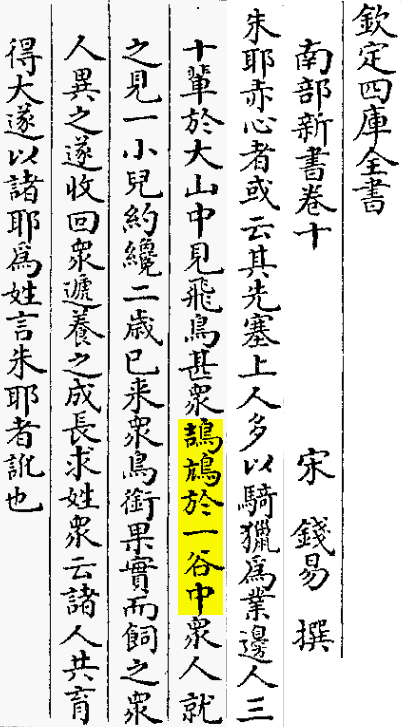 欽定四庫全書
南部新書卷十　宋　錢易　撰
朱耶赤心者或云其先塞上人多以騎獵爲業邊人三
十輩於大山中見飛鳥甚衆於一谷中衆人就
之見一小兒約纔二歲已来衆鳥銜果實而飼之衆
人異之遂收回衆遞養之成長求姓衆云諸人共育
得大遂以諸耶爲姓言朱耶者訛也